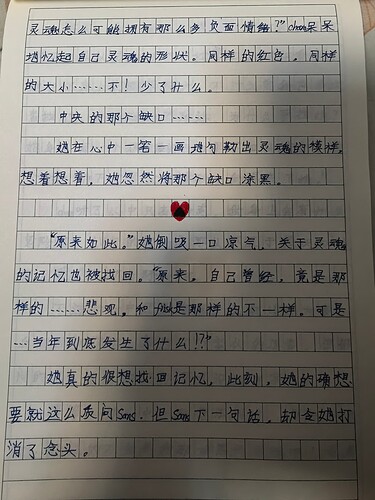 灵魂怎么可能拥有那么多负面情绪？”chara呆呆
地忆起自己灵魂的形状。同样的红色，同样
的大小……不！少了什么。
中央的那个缺口……
她在心中一笔一画地勾勒出灵魂的模样，
想着想着，她忽然将那个缺口涂黑。
“原来如此。”她倒吸一口凉气，关于灵魂
的记忆也被找回。“原来，自己曾经，竟是那
样的……悲观。和frisk是那样的不一样。可是
…当年到底发生了什么！？”
她真的很想找回记忆，此刻，她的确想
要就这么质问Sans。但Sans下一句话，却令她打
消了念头。